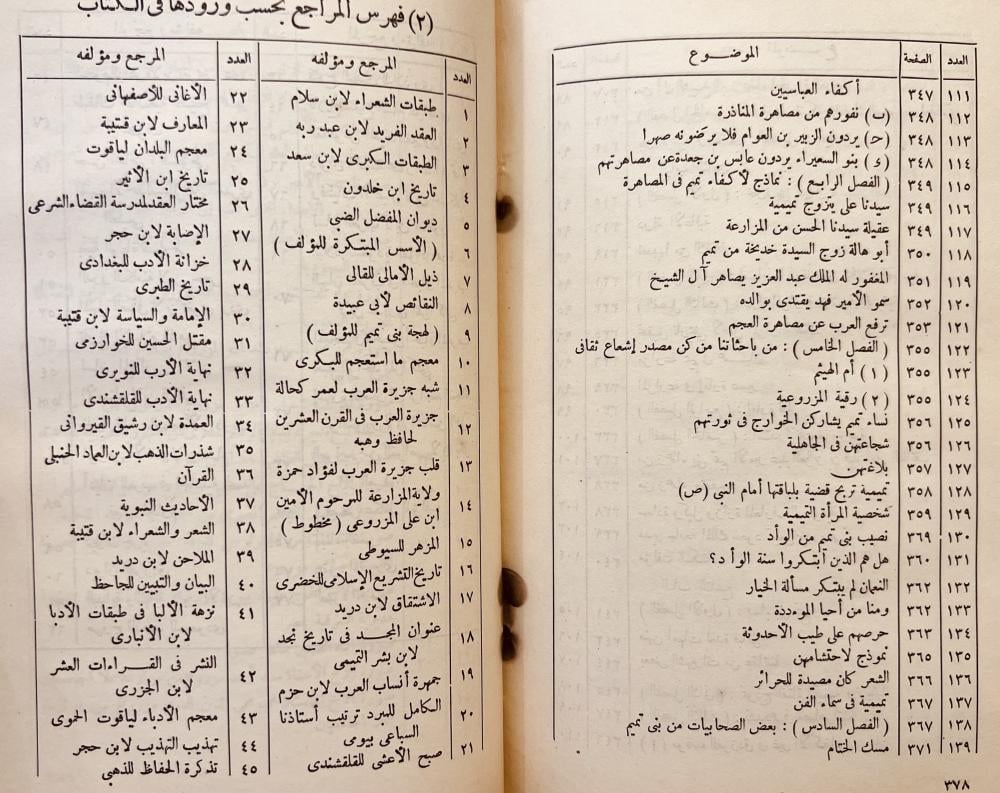 العدد الصفحة الموضوع
١١١ ٣٤٧ أكفاء العباسيين
١١٢ ٣٤٨ (ب) نفورهم من مصاهرة المناذرة
١١٣ ٣٤٨ (ح) يردون الزبير بن العوام فلا يرضونه صهرا
١١٤ ٣٤٨ (ء) بنو السعيراء يردون عابس بن جعدة عن مصاهرتهم
١١٥ ٣٤٩ (الفصل الرابع) : نماذج لأكفاء تميم فى المصاهرة
١١٦ ٣٤٩ سيدنا على يتزوج تميمية
١١٧ ٣٤٩ عقيلة سيدنا الحسن من المزارعة
١١٨ ٣٥٠ أبو هالة زوج السيدة خديجة من تميم
١١٩ ٣٥١ المغفور له الملك عبد العزيز يصاهر آل الشيخ
١٢٠ ٣٥٢ سمو الأمير فهد يقتدى بوالده
١٢١ ٣٥٣ ترفع العرب عن مصاهرة العجم
١٢٢ ٣٥٥ (الفصل الخامس) : من باحثاتنا من كن مصدر إشعاع ثقافى
١٢٣ ٣٥٥ (١) أم الهيثم
١٢٤ ٣٥٥ (٢) رقية المزروعية
١٢٥ ٣٥٦ نساء تميم يشاركن الخوارج فى ثورتهم
١٢٦ ٣٥٦ شجاعتهن فى الجاهلية
١٢٧ ٣٥٧ بلاغتهن
١٢٨ ٣٥٨ تميمية تربح قضية بلباقتها أمام النبى (ص)
١٢٩ ٣٥٩ شخصية المرأة التميمية
١٣٠ ٣٦٩ نصيب بنى تميم من الوأد
١٣١ ٣٦٠ هل هم الذين ابتكروا سنة الوأد؟
١٣٢ ٣٦٢ النعمان لم يبتكر مسألة الخيار
١٣٣ ٣٦٢ ومنا من أحيا الموءددة
١٣٤ ٣٦٣ حرصهم على طيب الأحدوثة
١٣٥ ٣٦٥ نموذج لاحتشامهن
١٣٦ ٣٦٦ الشعر كان مصيدة للحرائر
١٣٧ ٣٦٧ تميمية فى سماء الفن
١٣٨ ٣٦٧ (الفصل السادس) : بعض الصحابيات من بنى تميم
١٣٩ ٣٧١ مسك الختام
٣٧٨
(٢) فهرس المراجع بحسب ورودها فى الكتاب
العدد المرجع ومؤلفه
١ طبقات الشعراء لابن سلام
٢ العقد الفريد لابن عبد ربه
٣ الطبقات الكبرى لابن سعد
٤ تاريخ ابن خلدون
٥ ديوان المفضل الضبى
٦ (الأسس المبتكرة للمؤلف)
٧ ذيل الأمالى للقالى
٨ النقائص لأبى عبيدة
٩ (لهجة بنى تميم للمؤلف)
١٠ معجم ما استعجم للبكرى
١١ شبه جزيرة العرب لعمر كحالة
١٢ جزيرة العرب فى القرن العشرين
لحافظ وهبه
١٣ قلب جزيرة العرب لفؤاد حمزة
١٤ ولاية المزارعة للمرحوم الأمين
ابن على المزروعى (مخطوط)
١٥ المزهر للسيوطى
١٦ تاريخ التشريع الإسلامى للخضرى
١٧ الاشتقاق لابن دريد
١٨ عنوان المجد فى تاريخ نجد
لابن بشر التميمى
١٩ جمهرة أنساب العرب لابن حزم
٢٠ الكامل للمبرد ترتيب أستاذنا
السباعى بيومى
٢١ صبح الأعشى للقلقشندى
العدد المرجع ومؤلفه
٢٢ الأغانى للأصفهانى
٢٣ المعارف لابن قتيبة
٢٤ معجم البلدان لياقوت
٢٥ تاريخ ابن الأثير
٢٦ مختار العقد لمدرسة القضاء الشرعى
٢٧ الإصابة لابن حجر
٢٨ خزانة الأدب للبغدادى
٢٩ تاريخ الطبرى
٣٠ الإمامة والسياسة لابن قتيبة
٣١ مقتل الحسين للخوارزمى
٣٢ نهاية الأرب للنويرى
٣٣ نهاية الأدب للقلقشندى
٣٤ العمدة لابن رشيق القيروانى
٣٥ شذرات الذهب لابن العماد الحنبلى
٣٦ القرآن
٣٧ الأحاديث النبوية
٣٨ الشعر والشعراء لابن قتيبة
٣٩ الملاحن لابن دريد
٤٠ البيان والتبيين للجاحظ
٤١ نزهة الألبا فى طبقات الأدبا
لابن الأنبارى
٤٢ النشر فى القراءات العشر
لابن الجزرى
٤٣ معجم الأدباء لياقوت الحموى
٤٤ تهذيب التهذيب لابن حجر
٤٥ تذكرة الحفاظ للذهبى